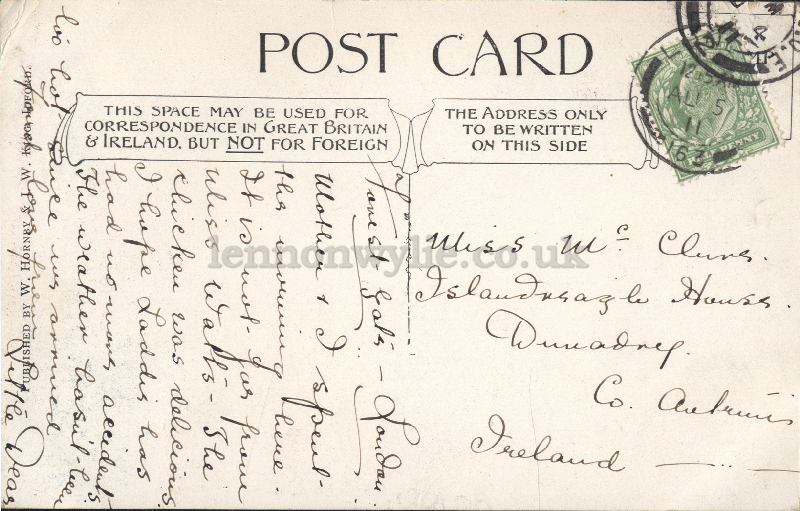 POST CARD
THIS SPACE MAY BE USED FOR
CORRESPONDENCE IN GREAT BRITAIN
& IRELAND, BUT NOT FOR FOREIGN
THE ADDRESS ONLY
TO BE WRITTEN
ON THIS SIDE
AU 5
11
Forest Gate – London
Mother & I spent
the evening here.
It is not far from
Miss Watts – The
chicken was delicious
I hope Laddie has
had no more accidents
The weather hasn't been
too hot since we arrived
love from Little Dear
Miss McClure.
Islandreagh House.
Dunadry.
Co. Antrim
Ireland
lennonwylie.co.uk
PUBLISHED BY W. HORNBY &